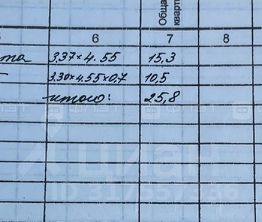 Обща
кварт
6 7 8
та 3,37×4.55 15,3
3.30×4.55×0,7 10,5
итого: 25,8